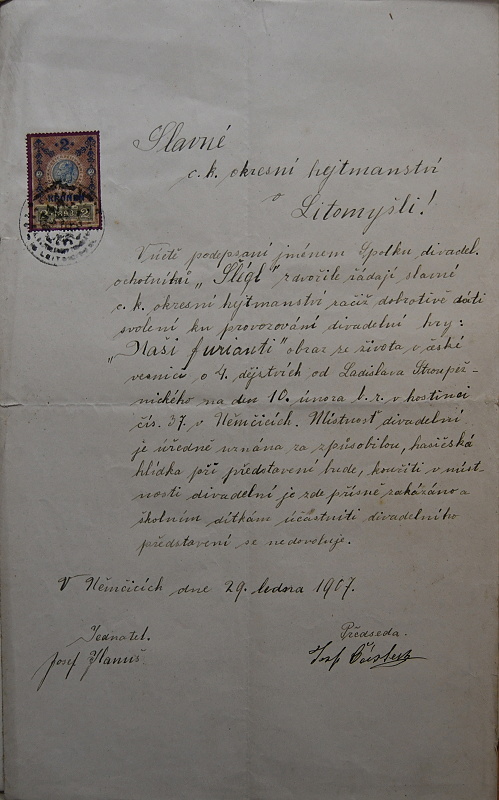 2
2
Slavné
c. k. okresní hejtmanství
v
Litomyšli!
V úctě podepsaní jménem Spolku divadel.
ochotníků „Šlégl" zdvořile žádají slavné
c. k. okresní hejtmanství račiž dobrotivě dáti
svolení ku provozování divadelní hry:
„Naši furianti" obraz ze života v české
vesnici o 4. dějstvích od Ladislava Stroupež-
nického na den 10. února b. r. v hostinci
čís. 37. v Němčicích. Místnost divadelní
je úředně uznána za způsobilou, hasičská
hlídka při představení bude, kouřiti v míst-
nosti divadelní je zde přísně zakázáno a
školním dítkám účastniti divadelního
představení se nedovoluje.
V Němčicích dne 29. ledna 1907.
Jednatel.
Josef Hanuš.
Předseda.
Josef